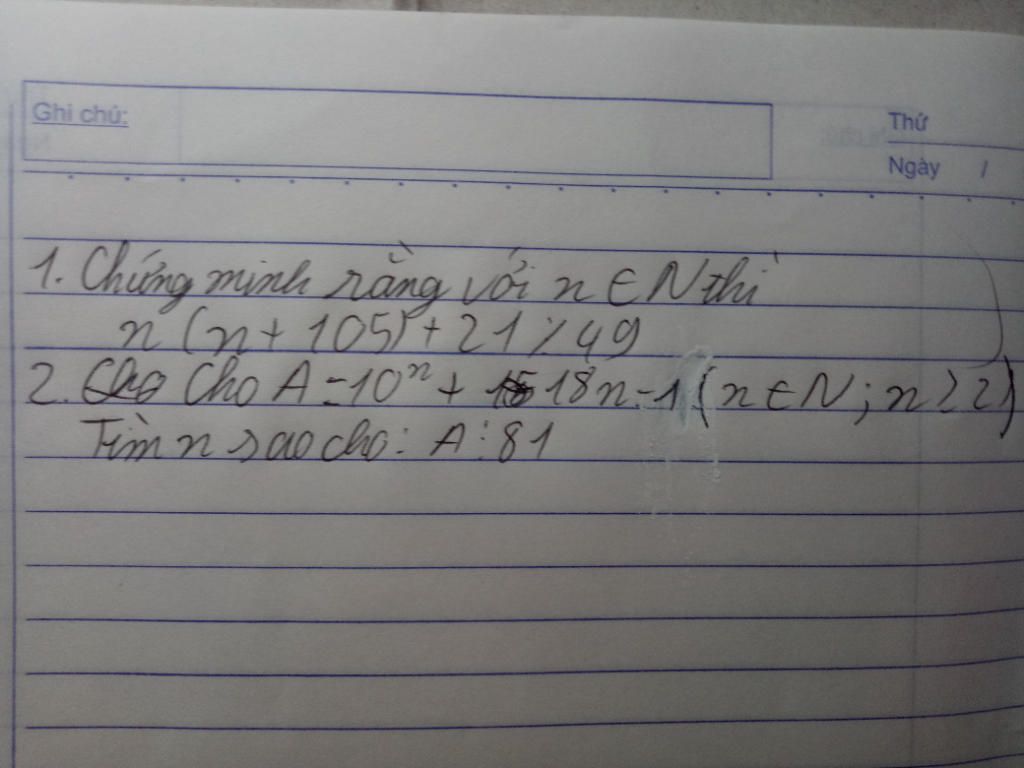 Ghi chú:
Thứ
Ngày /
1. Chứng minh rằng với n ∈ N thì
n (n + 105) + 21 ⋮̸ 49
2. Cho Cho A = 10ⁿ + 18n - 1 (n ∈ N; n ≥ 2)
Tìm n sao cho: A ⋮ 81